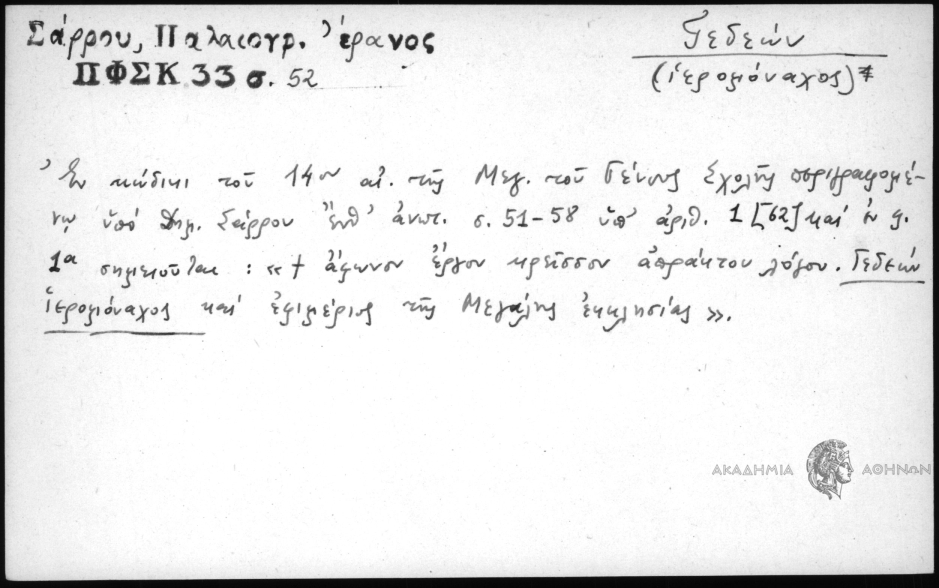 Σάρρου, Παλαιογρ. Ἔρανος
ΠΦΣΚ 33 σ. 52
Γεδεών
(ἱερομόναχος)
Ἐν κώδικι τοῦ 14ου αἰ. τῆς Μεγ. τοῦ Γένους Σχολῆς περιγραφομέ-
νῳ ὑπὸ Δημ. Σάρρου ἔνθ' ἀνωτ. σ. 51-58 ὑπ' ἀριθ. 1 [62] καί ἐν φ.
1α σημειοῦται : « † ἄφωνον ἔργον κρεῖσσον ἀπράκτου λόγου. Γεδεών
ἱερομόναχος καί ἐφημέριος τῆς Μεγάλης ἐκκλησίας ».
ΑΚΑΔΗΜΙΑ ΑΘΗΝΩΝ